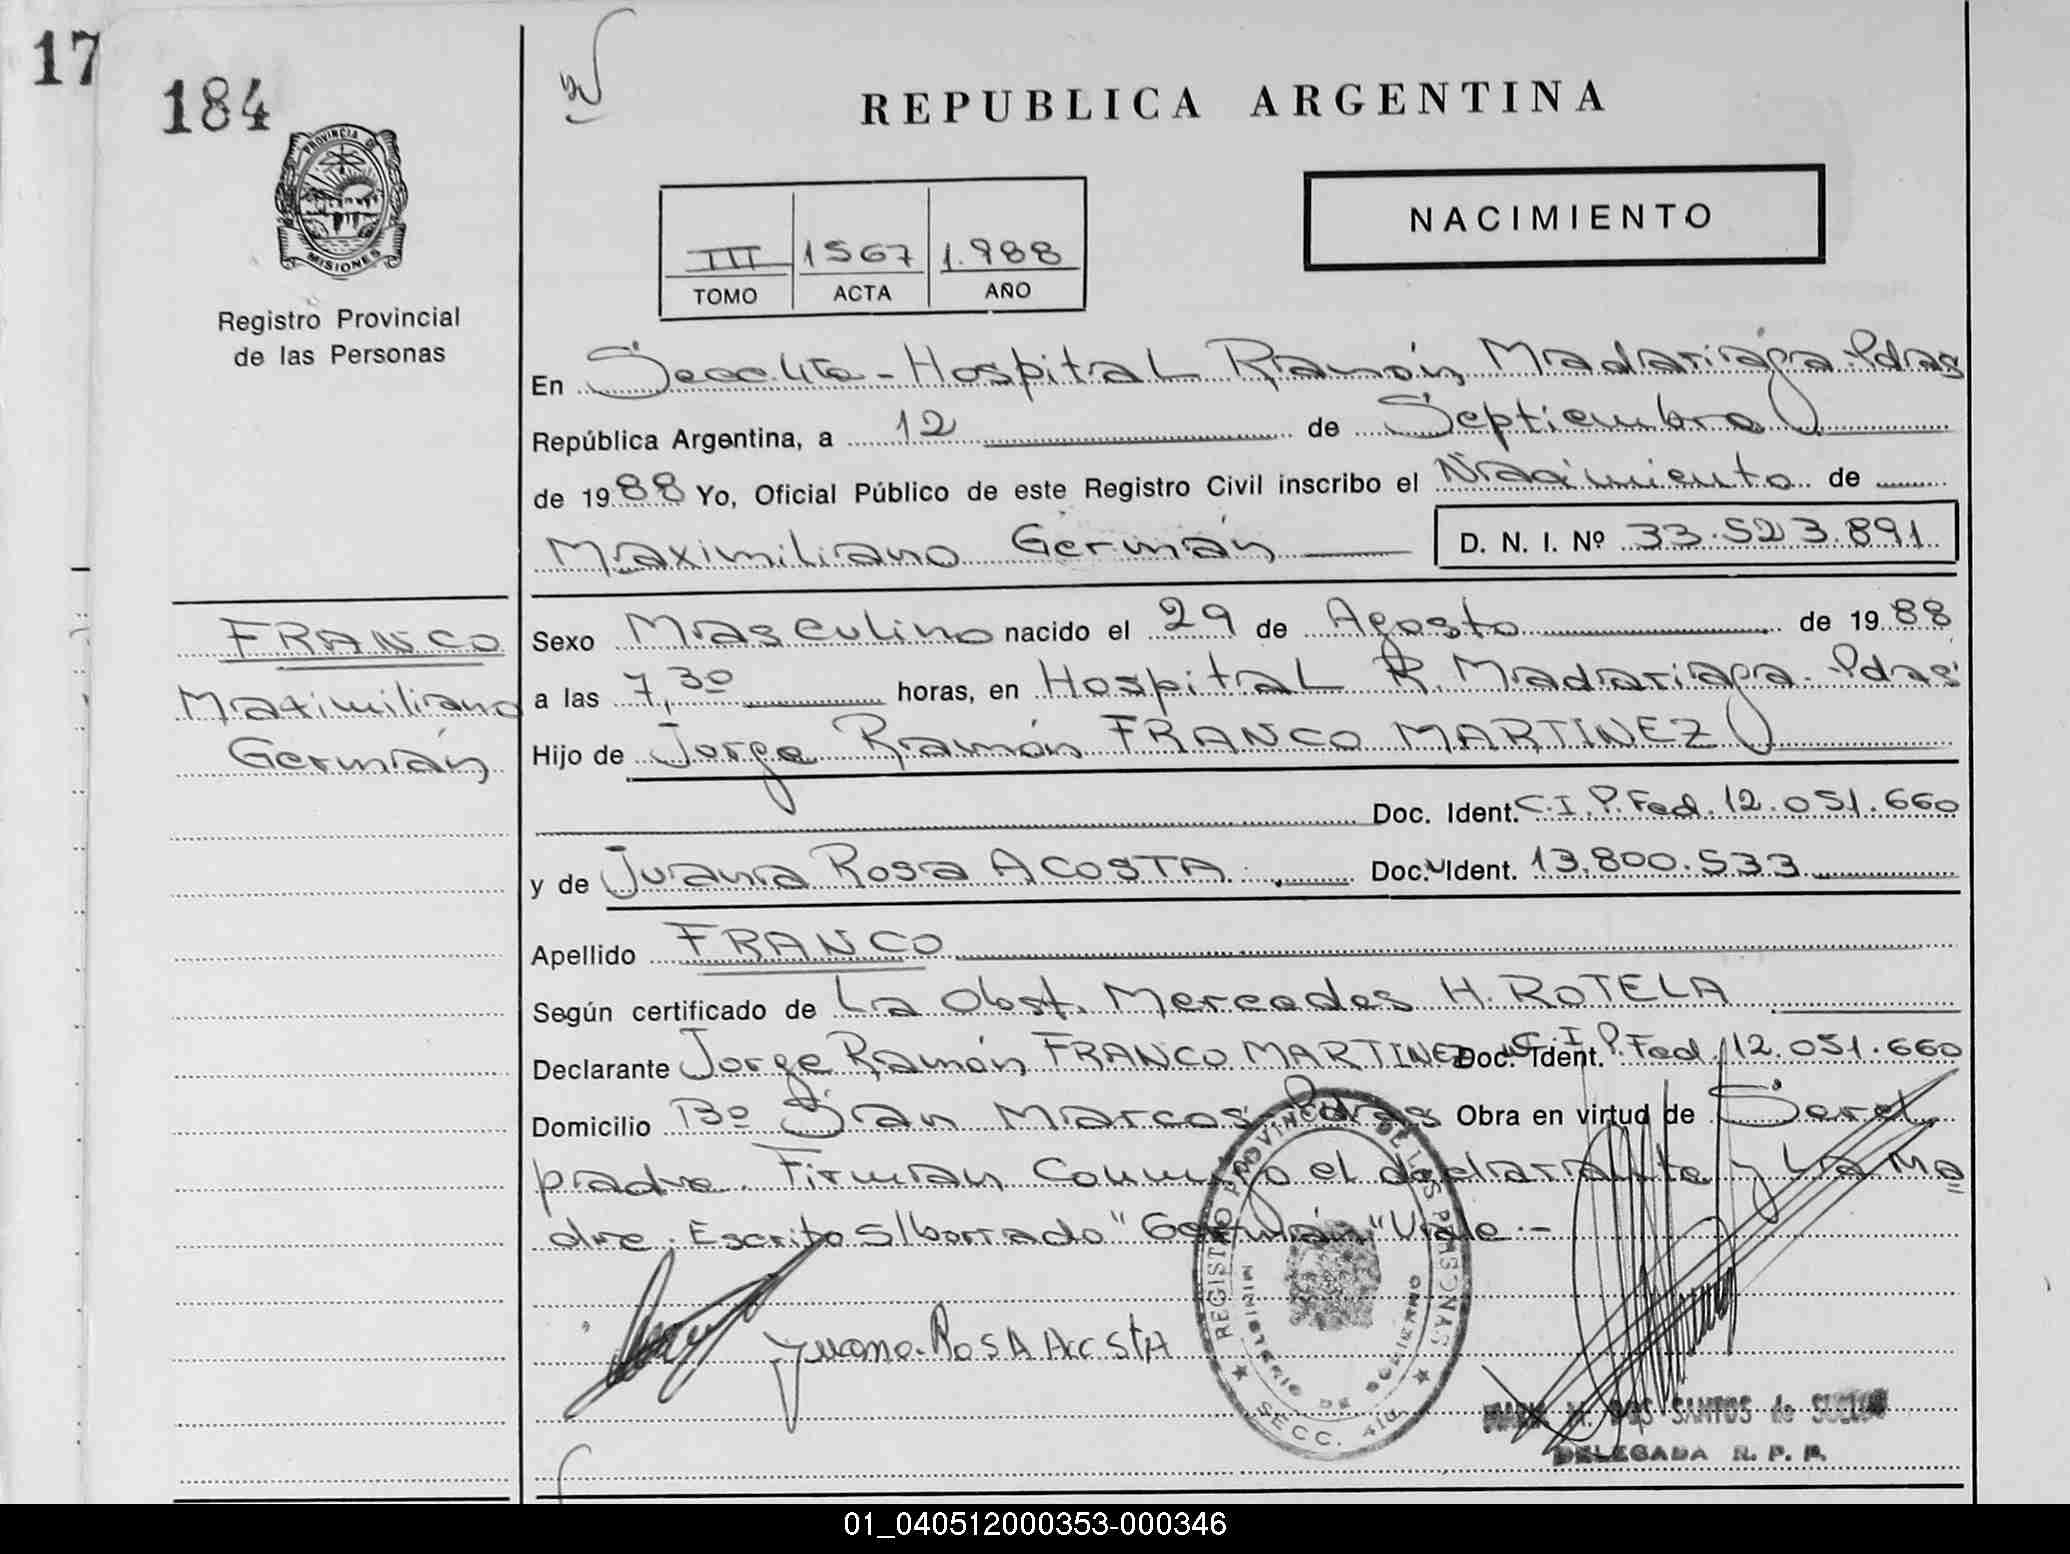 17
184
REPUBLICA ARGENTINA
PROVINCIA DE
MISIONES
NACIMIENTO
III 1567 1.988
TOMO ACTA AÑO
Registro Provincial
de las Personas
En Secc. 4ta - Hospital Ramón Madariaga. Pdas
República Argentina, a 12 de Septiembre
de 1988 Yo, Oficial Público de este Registro Civil inscribo el Nacimiento de
Maximiliano Germán D. N. I. Nº 33.523.891
FRANCO
Maximiliano
Germán
Sexo Masculino nacido el 29 de Agosto de 1988
a las 7,30 horas, en Hospital R. Madariaga. Pdas
Hijo de Jorge Ramón FRANCO MARTINEZ
Doc. Ident. C.I.P.Fed. 12.051.660
y de Juana Rosa ACOSTA Doc. Ident. 13.800.533
Apellido FRANCO
Según certificado de La Obst. Mercedes H. ROTELA
Declarante Jorge Ramón FRANCO MARTINEZ Doc. Ident. C.I.P.Fed. 12.051.660
Domicilio Bº San Marcos Pdas Obra en virtud de Ser el
padre. Firman Conmigo el declarante y La Ma
dre. Escrito S/borrado "Germán" Vale.-
Juana Rosa AcostA
REGISTRO PROVINCIAL DE LAS PERSONAS
MINISTERIO DE GOBIERNO
SECC. 4TA
M. DOS SANTOS de
DELEGADA R. P. P.
01_040512000353-000346